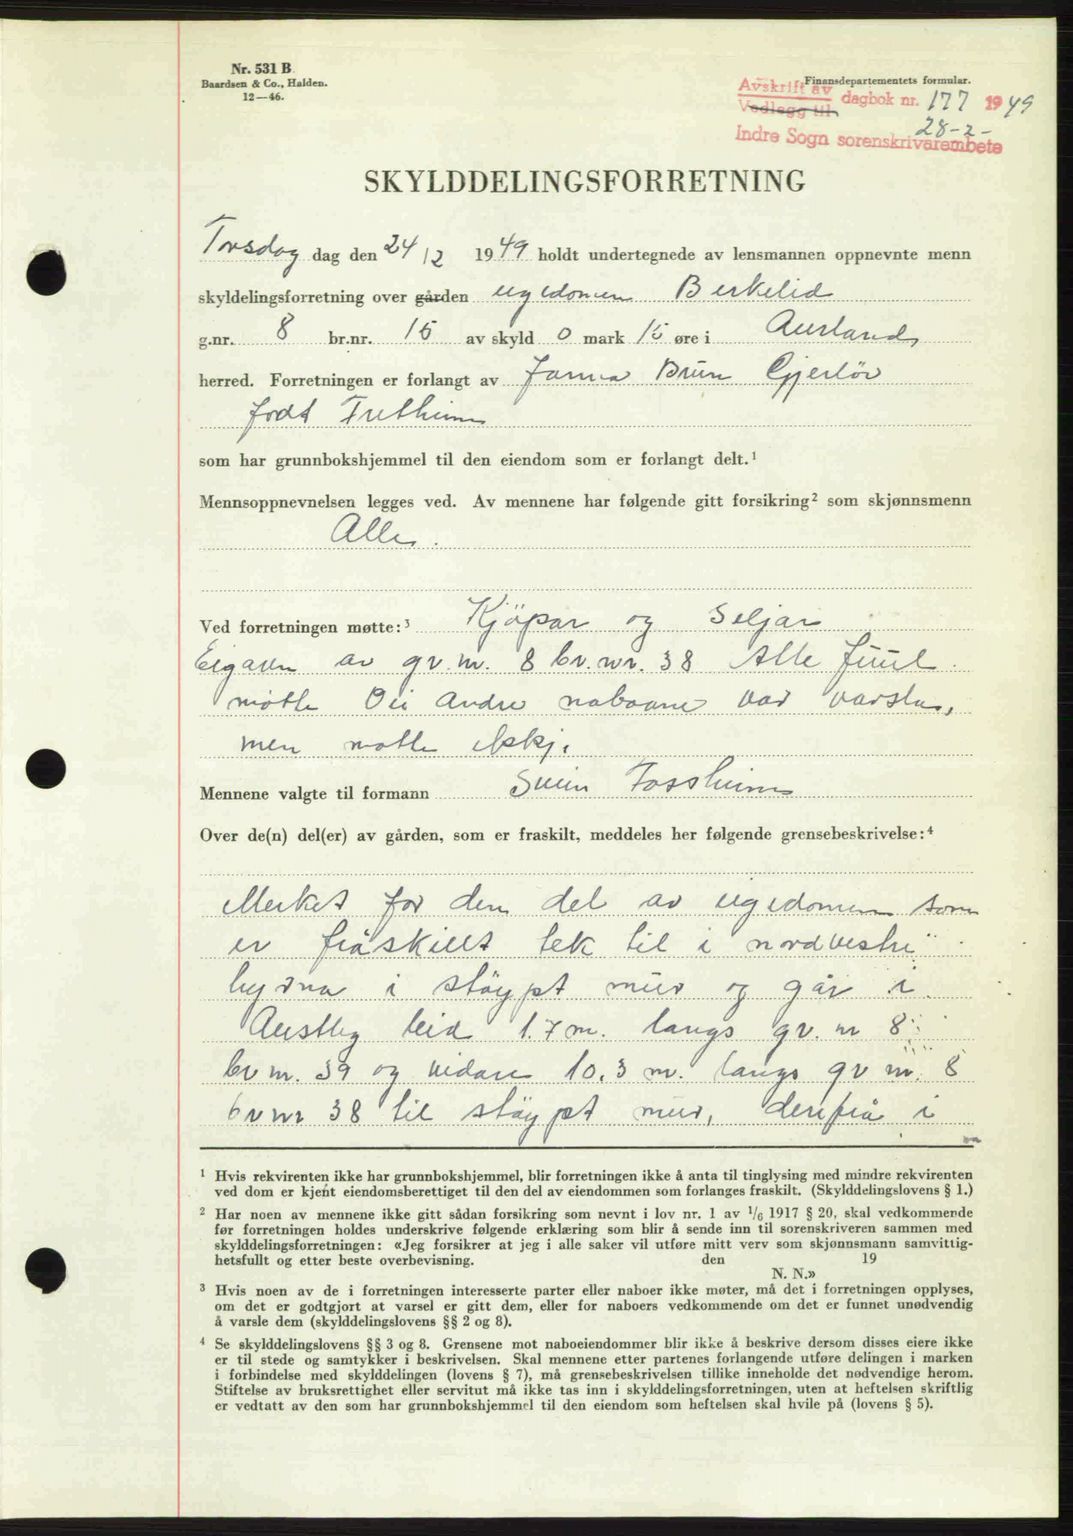 Nr. 531 B
Baardsen & Co., Halden.
12—46.
Finansdepartementets formular.
Avskrift av
Vedlegg til
dagbok nr. 177 1949
28-2-
Indre Sogn sorenskrivarembete
SKYLDDELINGSFORRETNING
Torsdag dag den 24/2 1949 holdt undertegnede av lensmannen oppnevnte menn
skyldelingsforretning over gården eigedomen Berkelid
g.nr. 8 br.nr. 15 av skyld 0 mark 15 øre i Aurland
herred. Forretningen er forlangt av Janna Brun Gjerløv
født Fretheim
som har grunnbokshjemmel til den eiendom som er forlangt delt.¹
Mennsoppnevnelsen legges ved. Av mennene har følgende gitt forsikring² som skjønnsmenn
Alle.
Ved forretningen møtte:³ Kjöpar og Seljar
Eigaren av gr. nr. 8 br. nr. 38 Atle Juul
møtte Dei andre naboane var varsla,
men møtte ikkj.
Mennene valgte til formann Svein Fossheim
Over de(n) del(er) av gården, som er fraskilt, meddeles her følgende grensebeskrivelse:⁴
Merket for den del av eigedomen som
er fråskillt tek til i nordvestre
hyrna i støypt mur og går i
Austleg leid 1.7 m. langs gr. nr 8
br nr. 39 og vidare 10.3 m. langs gr nr. 8
br nr 38 til støypt mur, derifrå i
¹ Hvis rekvirenten ikke har grunnbokshjemmel, blir forretningen ikke å anta til tinglysing med mindre rekvirenten
ved dom er kjent eiendomsberettiget til den del av eiendommen som forlanges fraskilt. (Skylddelingslovens § 1.)
² Har noen av mennene ikke gitt sådan forsikring som nevnt i lov nr. 1 av 1/6 1917 § 20, skal vedkommende
før forretningen holdes underskrive følgende erklæring som blir å sende inn til sorenskriveren sammen med
skylddelingsforretningen: «Jeg forsikrer at jeg i alle saker vil utføre mitt verv som skjønnsmann samvittig-
hetsfullt og etter beste overbevisning. den 19
N. N.»
³ Hvis noen av de i forretningen interesserte parter eller naboer ikke møter, må det i forretningen opplyses,
om det er godtgjort at varsel er gitt dem, eller for naboers vedkommende om det er funnet unødvendig
å varsle dem (skylddelingslovens §§ 2 og 8).
⁴ Se skylddelingslovens §§ 3 og 8. Grensene mot naboeiendommer blir ikke å beskrive dersom disses eiere ikke
er til stede og samtykker i beskrivelsen. Skal mennene etter partenes forlangende utføre delingen i marken
i forbindelse med skylddelingen (lovens § 7), må grensebeskrivelsen tillike inneholde det nødvendige herom.
Stiftelse av bruksrettighet eller servitut må ikke tas inn i skylddelingsforretningen, uten at heftelsen skriftlig
er vedtatt av den som har grunnbokshjemmel til den eiendom som heftelsen skal hvile på (lovens § 5).